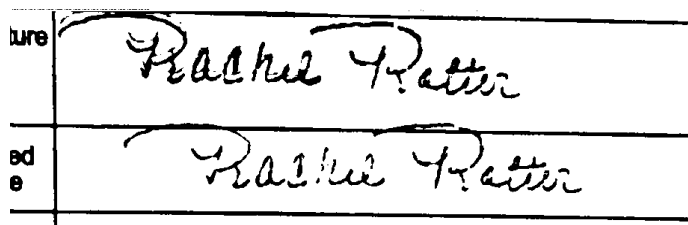 ture Rachel Ratter
ed Rachel Ratter
e